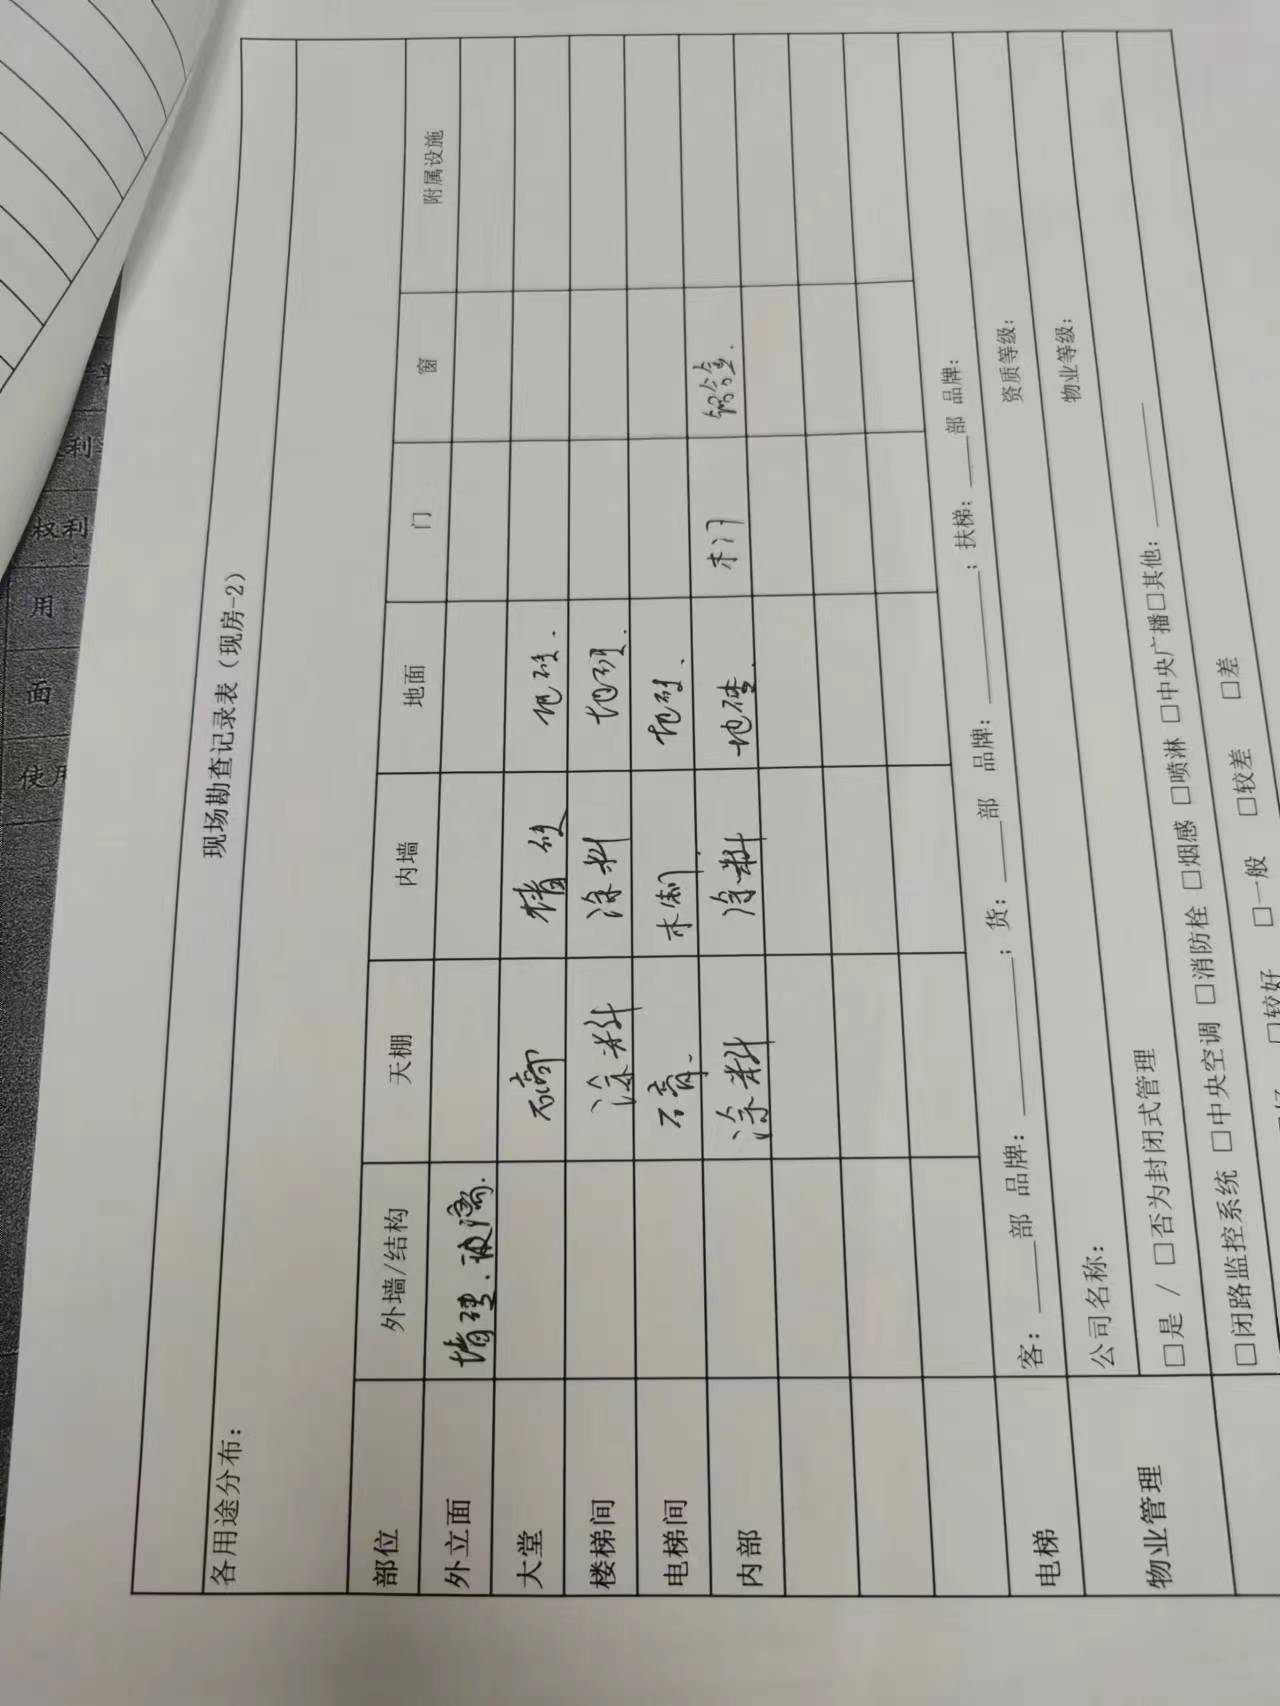 现场勘查记录表（现房-2）
各用途分布：
部位 外墙/结构 天棚 内墙 地面 门 窗 附属设施
外立面 墙砖.玻璃.
大堂 石膏 墙砖 地砖.
楼梯间 涂料 涂料 地砖.
电梯间 石膏. 木制. 地砖.
内部 涂料 涂料 地砖. 木门 铝合金.
电梯 客：____部 品牌：________；货：____部 品牌：________；扶梯：____部 品牌：
物业管理 公司名称： 资质等级：
物业等级：
□是 / □否为封闭式管理
□闭路监控系统 □中央空调 □消防栓 □烟感 □喷淋 □中央广播□其他：________
□较好 □一般 □较差 □差
权利
用
面
使用